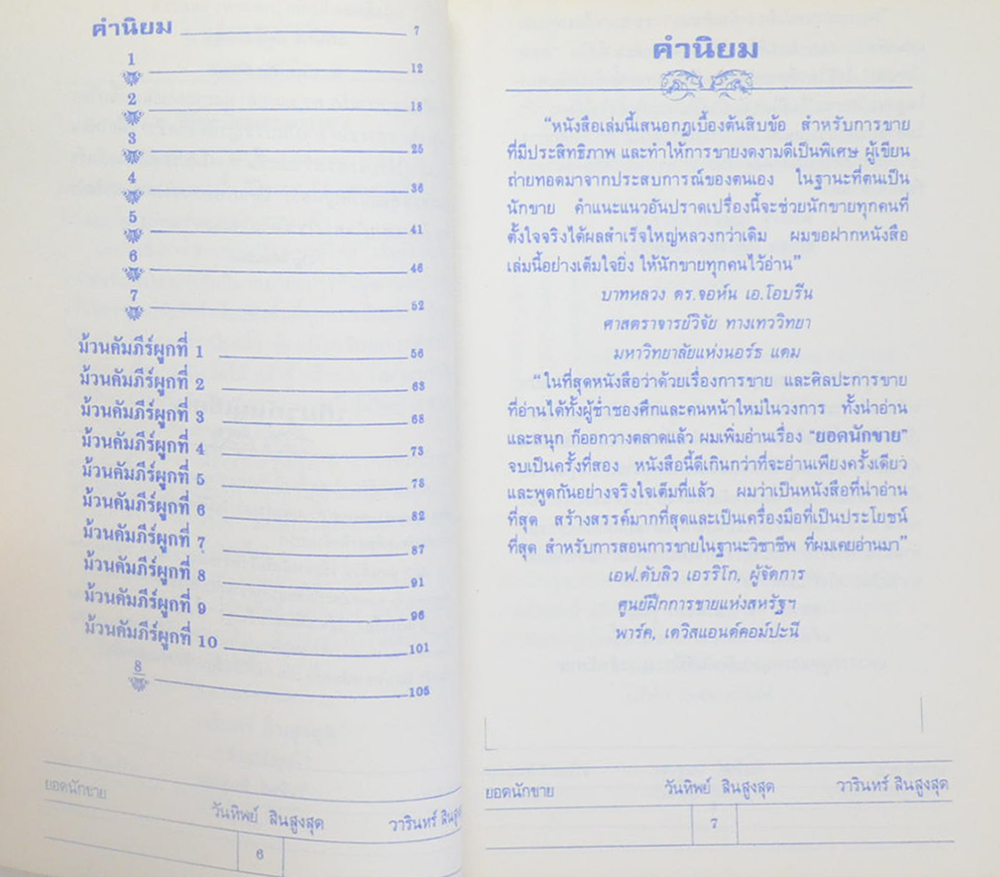 คำนิยม 7
1 12
2 18
3 25
4 36
5 41
6 46
7 52
ม้วนคัมภีร์ผูกที่ 1 56
ม้วนคัมภีร์ผูกที่ 2 63
ม้วนคัมภีร์ผูกที่ 3 68
ม้วนคัมภีร์ผูกที่ 4 73
ม้วนคัมภีร์ผูกที่ 5 78
ม้วนคัมภีร์ผูกที่ 6 82
ม้วนคัมภีร์ผูกที่ 7 87
ม้วนคัมภีร์ผูกที่ 8 91
ม้วนคัมภีร์ผูกที่ 9 96
ม้วนคัมภีร์ผูกที่ 10 101
8 105
ยอดนักขาย วันทิพย์ สินสูงสุด วารินทร์ สินสูงสุด
6
คำนิยม
“หนังสือเล่มนี้เสนอกฎเบื้องต้นสิบข้อ สำหรับการขาย
ที่มีประสิทธิภาพ และทำให้การขายงดงามดีเป็นพิเศษ ผู้เขียน
ถ่ายทอดมาจากประสบการณ์ของตนเอง ในฐานะที่ตนเป็น
นักขาย คำแนะแนวอันปราดเปรื่องนี้จะช่วยนักขายทุกคนที่
ตั้งใจจริงได้ผลสำเร็จใหญ่หลวงกว่าเดิม ผมขอฝากหนังสือ
เล่มนี้อย่างเต็มใจยิ่ง ให้นักขายทุกคนไว้อ่าน”
บาทหลวง ดร.จอห์น เอ.โอบรีน
ศาสตราจารย์วิจัย ทางเทววิทยา
มหาวิทยาลัยแห่งนอร์ธ แดม
“ในที่สุดหนังสือว่าด้วยเรื่องการขาย และศิลปะการขาย
ที่อ่านได้ทั้งผู้ช่ำชองศึกและคนหน้าใหม่ในวงการ ทั้งน่าอ่าน
และสนุก ก็ออกวางตลาดแล้ว ผมเพิ่มอ่านเรื่อง “ยอดนักขาย”
จบเป็นครั้งที่สอง หนังสือนี้ดีเกินกว่าที่จะอ่านเพียงครั้งเดียว
และพูดกันอย่างจริงใจเต็มที่แล้ว ผมว่าเป็นหนังสือที่น่าอ่าน
ที่สุด สร้างสรรค์มากที่สุดและเป็นเครื่องมือที่เป็นประโยชน์
ที่สุด สำหรับการสอนการขายในฐานะวิชาชีพ ที่ผมเคยอ่านมา”
เอฟ.ดับลิว เอรริโก, ผู้จัดการ
ศูนย์ฝึกการขายแห่งสหรัฐฯ
พาร์ค, เดวิสแอนด์คอม์ปะนี
ยอดนักขาย วันทิพย์ สินสูงสุด วารินทร์ สินสูงสุด
7